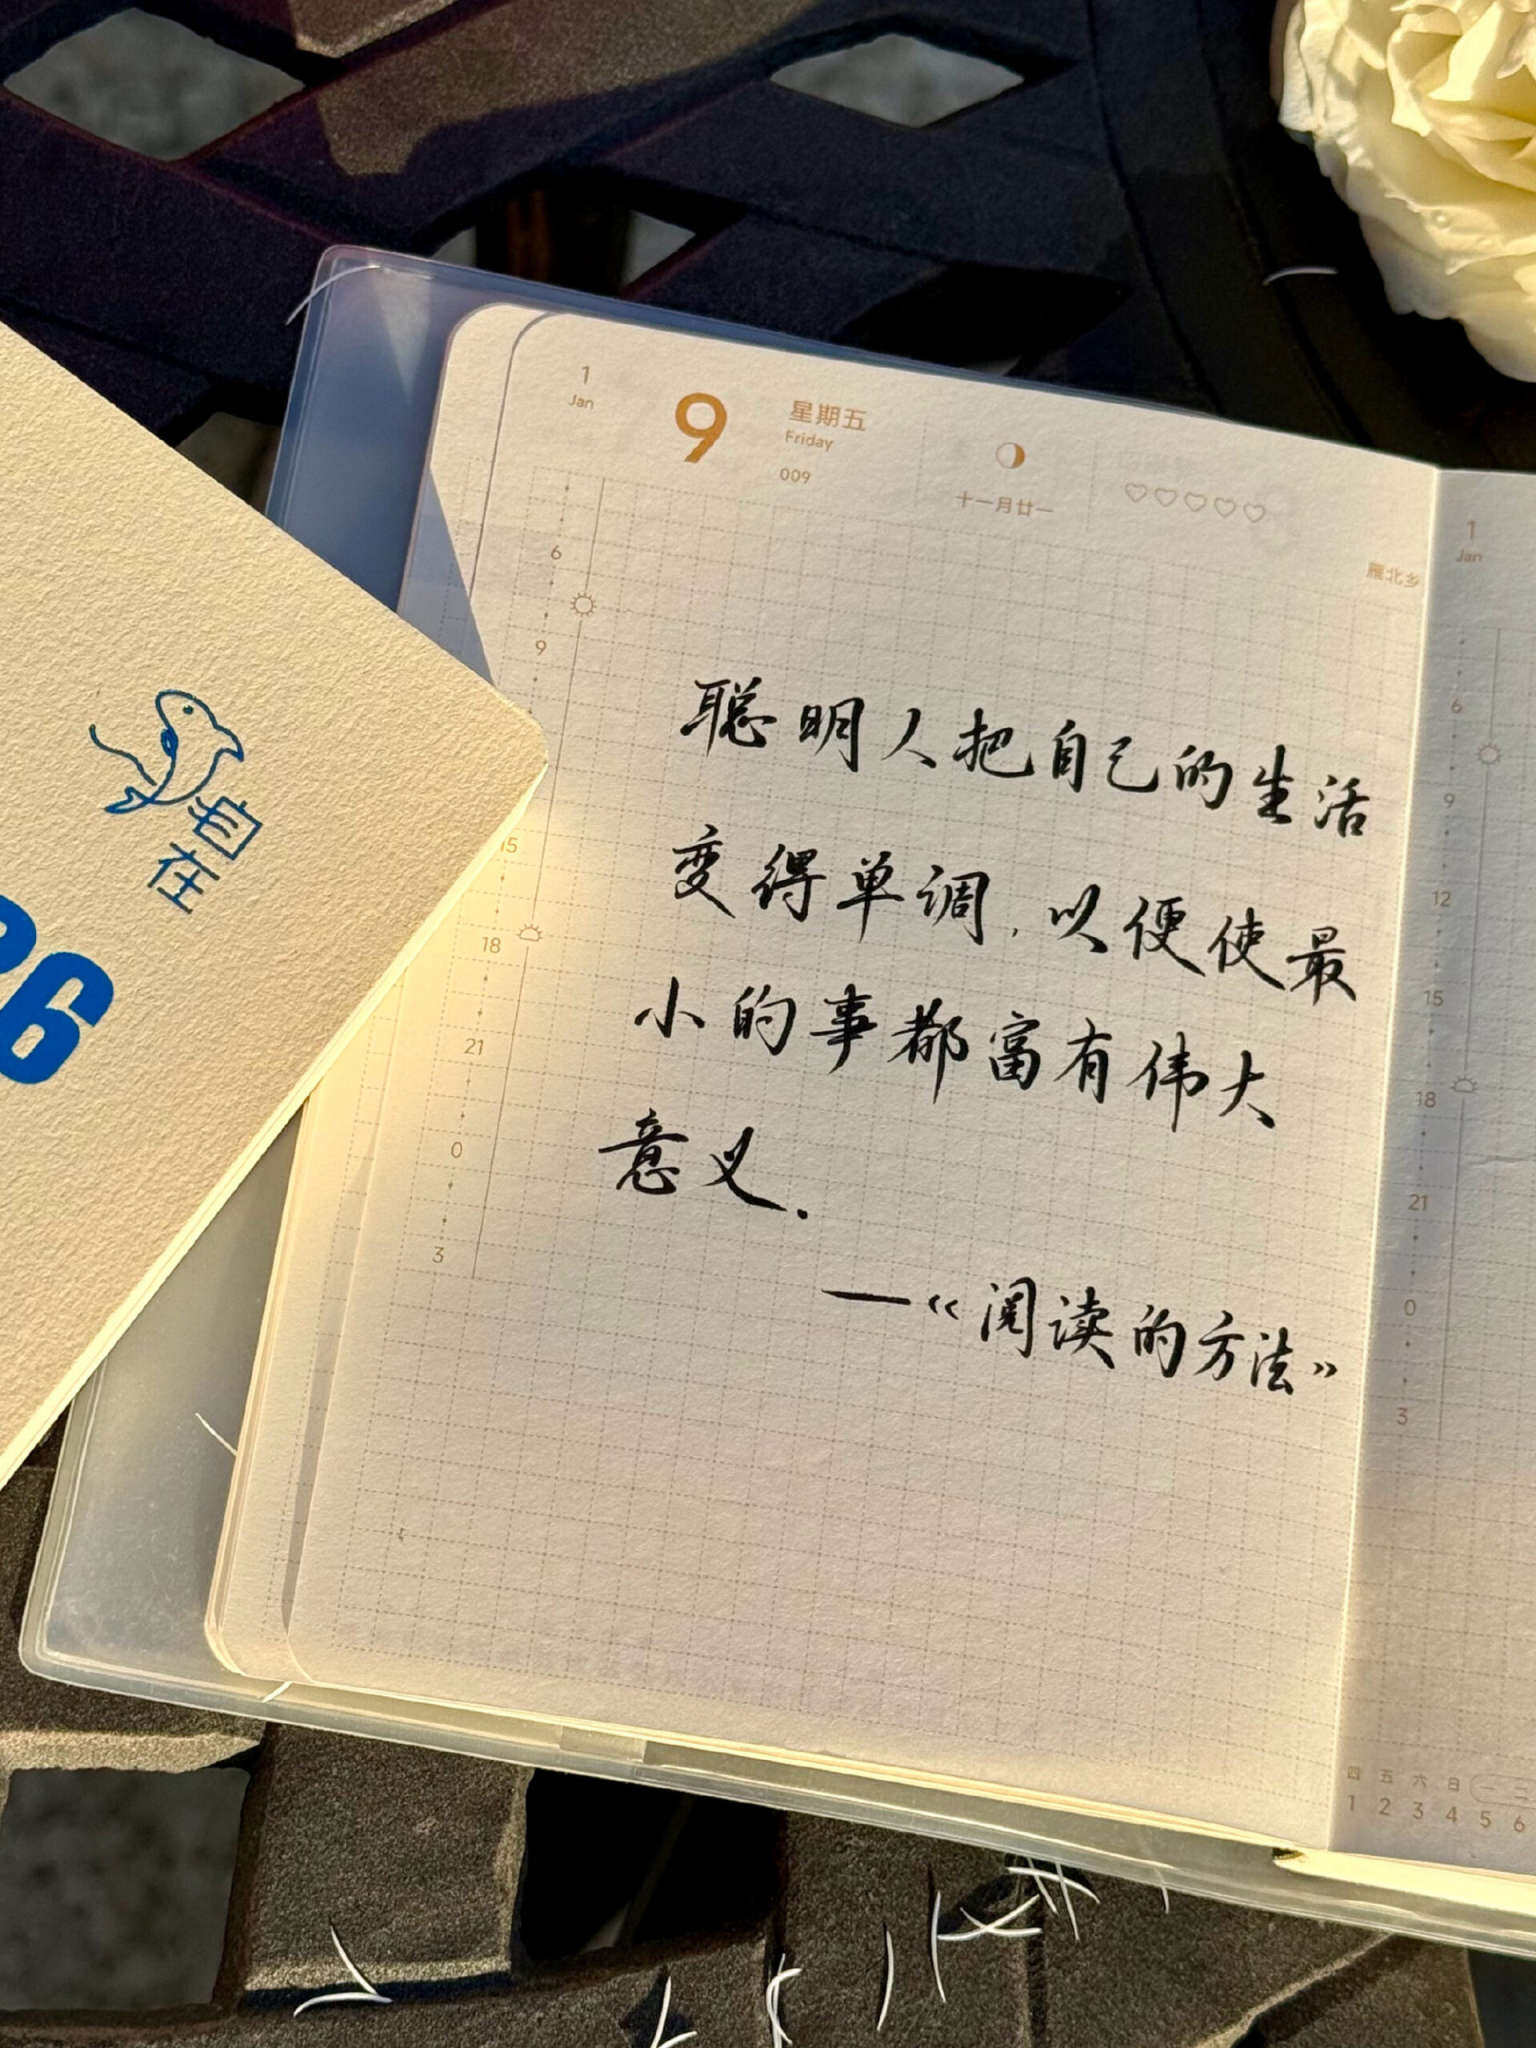 1
Jan
9
星期五
Friday
009
十一月廿一
雁北乡
6
9
15
18
21
0
3
聪明人把自己的生活
变得单调，以便使最
小的事都富有伟大
意义.
—《阅读的方法》
自在
26
1
Jan
6
9
12
15
18
21
0
3
四 五 六 日 一 二
1 2 3 4 5 6